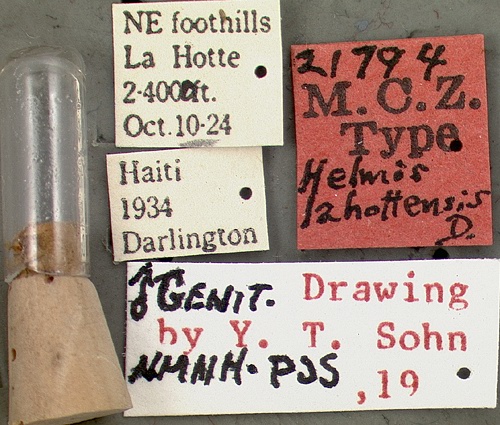 NE foothills
La Hotte
2-4000ft.
Oct. 10-24
Haiti
1934
Darlington
21794
M.C.Z.
Type
Helmis
lahottensis
D.
♂ GENIT. Drawing
by Y. T. Sohn
NMNH-PJS
,19